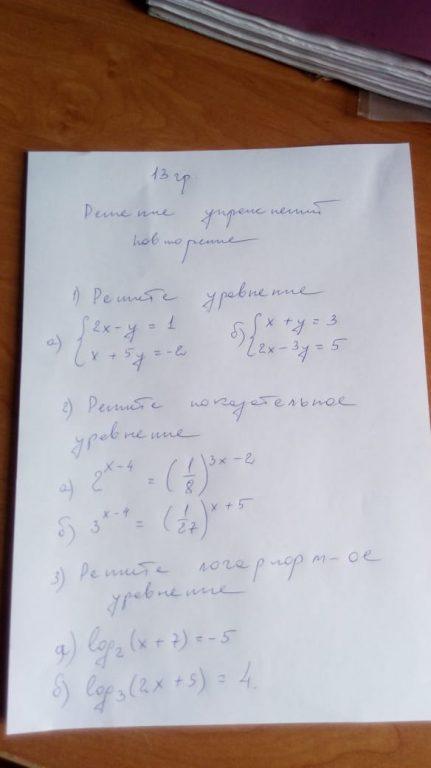 13 гр.
Решение упражнений
повторение
1) Решите уравнение
а) { 2x - y = 1
x + 5y = -2
б) { x + y = 3
2x - 3y = 5
2) Решите показательное
уравнение
а) 2^(x-4) = (1/8)^(3x-2)
б) 3^(x-4) = (1/27)^(x+5)
3) Решите логарифм-ое
уравнение
а) log₂(x + 7) = -5
б) log₃(2x + 5) = 4.